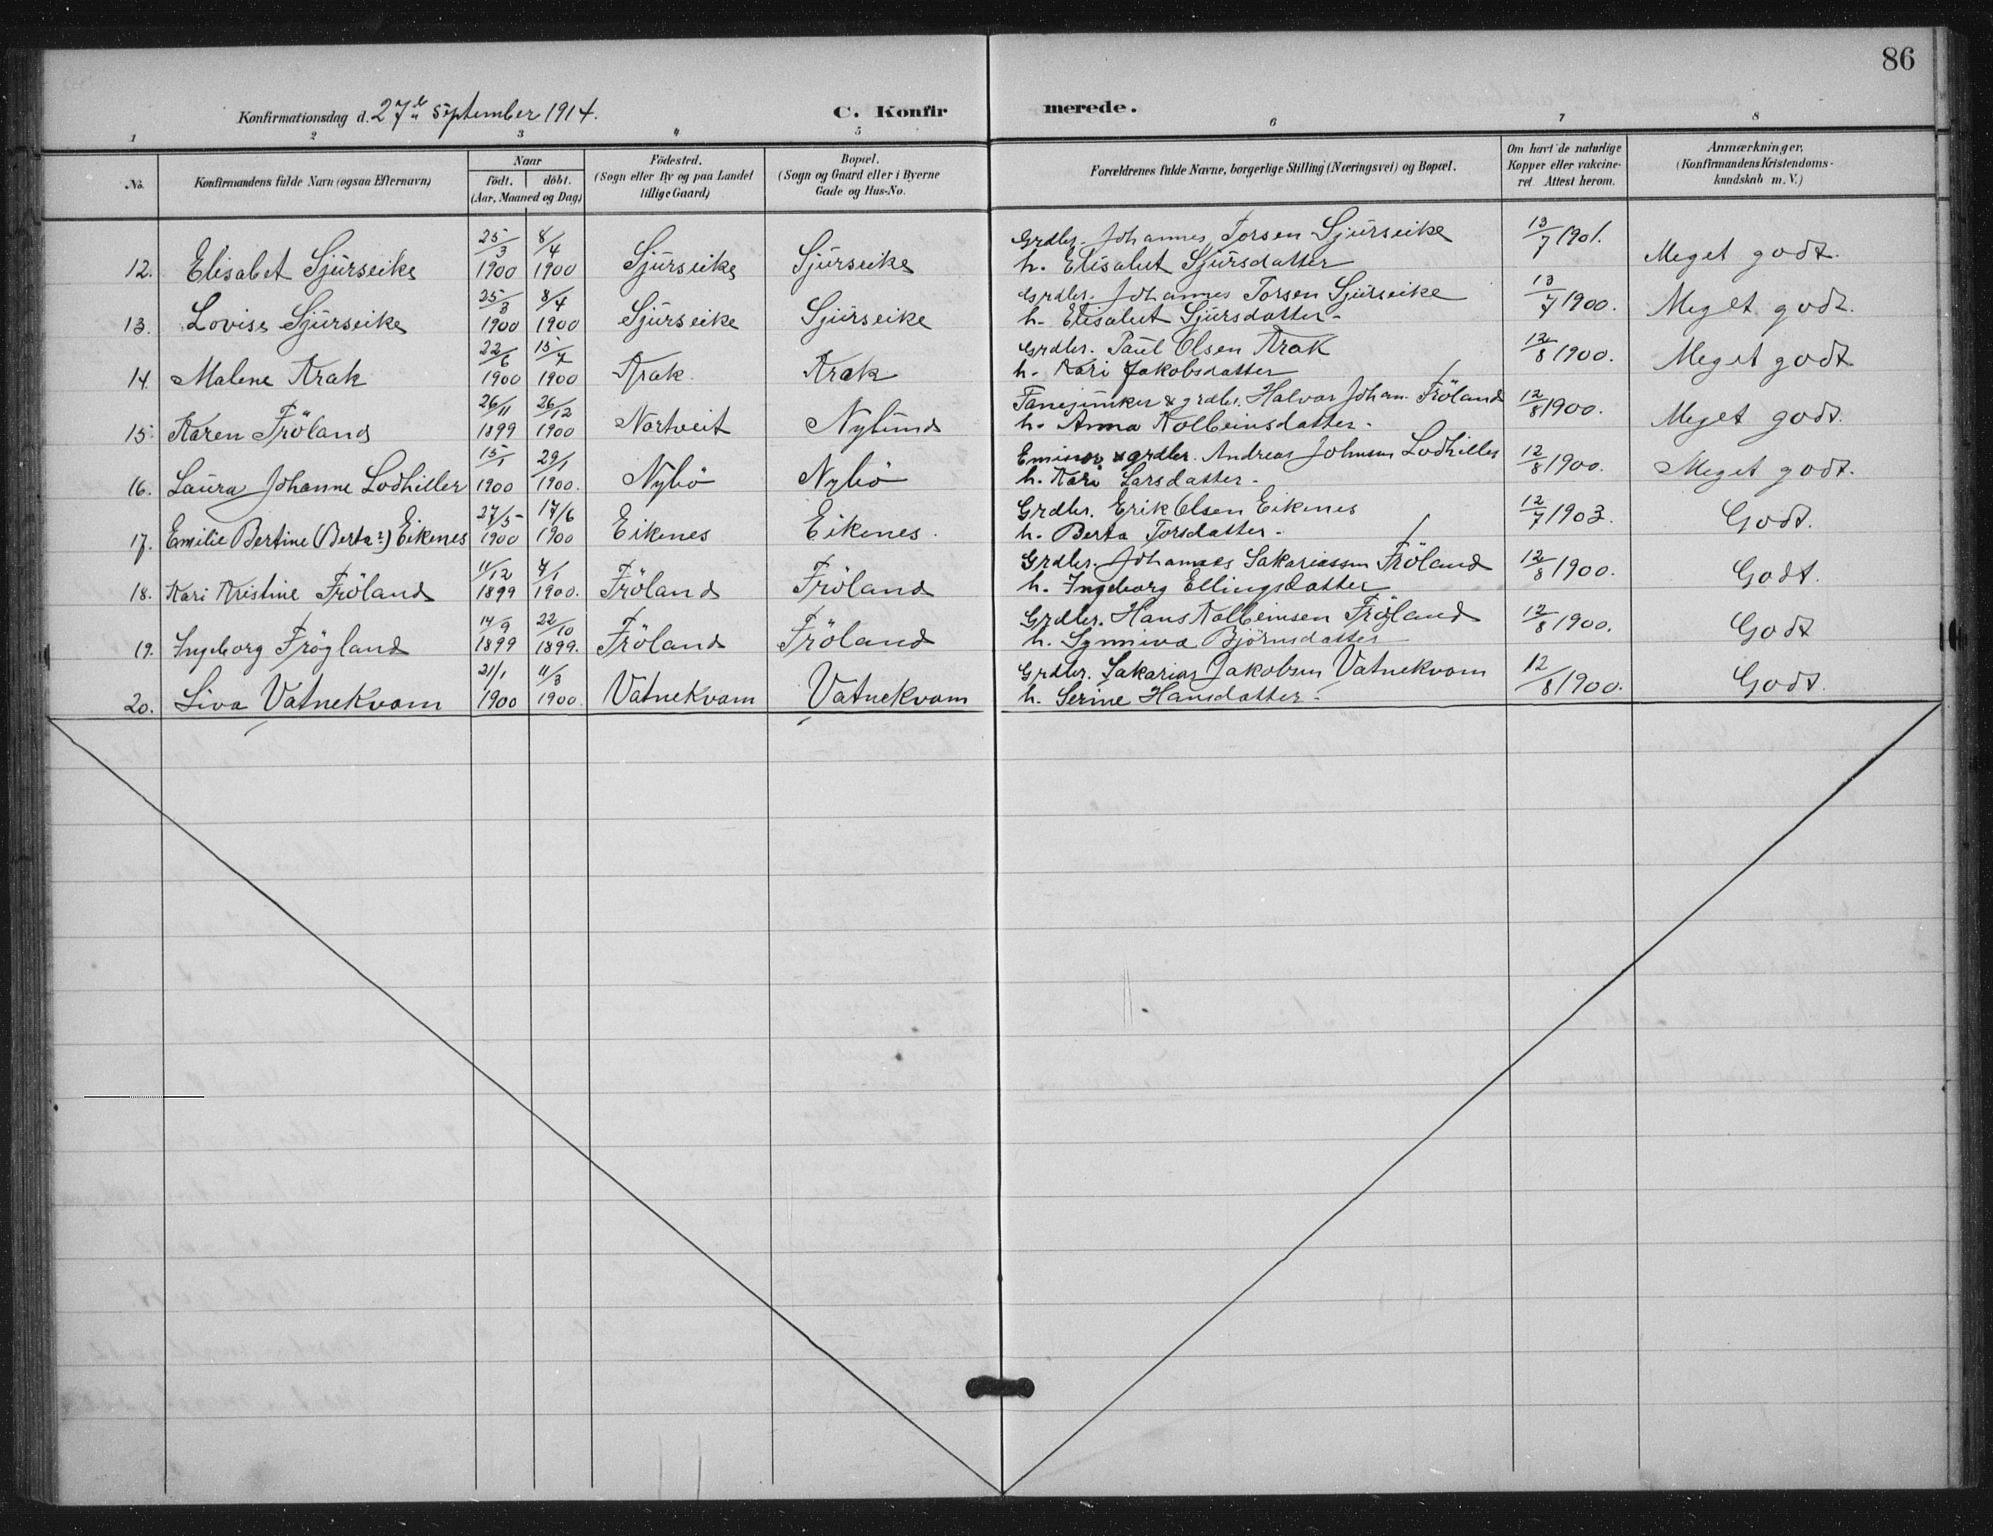 86
Konfirmationsdag d. 27de September 1914. C. Konfirmerede.
1 2 3 4 5 6 7 8
No. Konfirmandens fulde Navn (ogsaa Efternavn) Naar født. døbt. (Aar, Maaned og Dag) Födested. (Sogn eller By og paa Landet tillige Gaard) Bopæl. (Sogn og Gaard eller i Byerne Gade og Hus-No. Forældrenes fulde Navne, borgerlige Stilling (Næringsvei) og Bopæl. Om havt de naturlige Kopper eller vakcineret Attest herom. Anmærkninger. (Konfirmandens Kristendomskundskab m. V.)
12. Elisabet Sjurseike 25/3 1900 8/4 1900 Sjurseike Sjurseike Grdbr. Johannes Torsen Sjurseike 13/7 1901. Meget godt.
h. Elisabet Sjursdatter
13. Lovise Sjurseike 25/3 1900 8/4 1900 Sjurseike Sjurseike Grdbr. Johannes Torsen Sjurseike 13/7 1900. Meget godt.
h. Elisabet Sjursdatter -
14. Malene Krak 22/6 1900 15/7 1900 Krak. Krak Grdbr. Paul Olsen Krak 12/8 1900. Meget godt
h. Kari Jakobsdatter
15. Karen Fröland 26/11 1899 26/12 1900 Nortveit Nylund & grdbr. Halvor Johan. Fröland 12/8 1900. Meget godt.
h. Anna Kolbeinsdatter -
16. Laura Johanne Lodhiller 15/1 1900 29/1 1900. Nybö Nybö & grdbr. Andreas Johnsen Lodhiller 12/8 1900. Meget godt.
h. Kari Larsdatter -
17. Emilie Bertine (Berta?) Eikenes 27/5 1900 17/6 1900 Eikenes Eikenes. Grdbr. Erik Olsen Eikenes 12/7 1903. Godt.
h. Berta Torsdatter -
18. Kari Kristine Fröland 11/12 1899 7/1 1900. Fröland Fröland Grdbr. Johannes Sakariassen Fröland 12/8 1900. Godt.
h. Ingeborg Ellingsdatter
19. Ingeborg Frögland 14/9 1899 22/10 1899. Fröland Fröland Grdbr. Hans Kolbeinsen Fröland 12/8 1900. Godt
h. Synniva Björnsdatter
20. Siva Vatnekvam 21/1 1900 11/3 1900. Vatnekvam Vatnekvam Grdbr. Sakarias Jakobsen Vatnekvam 12/8 1900. Godt.
h. Serine Hansdatter -